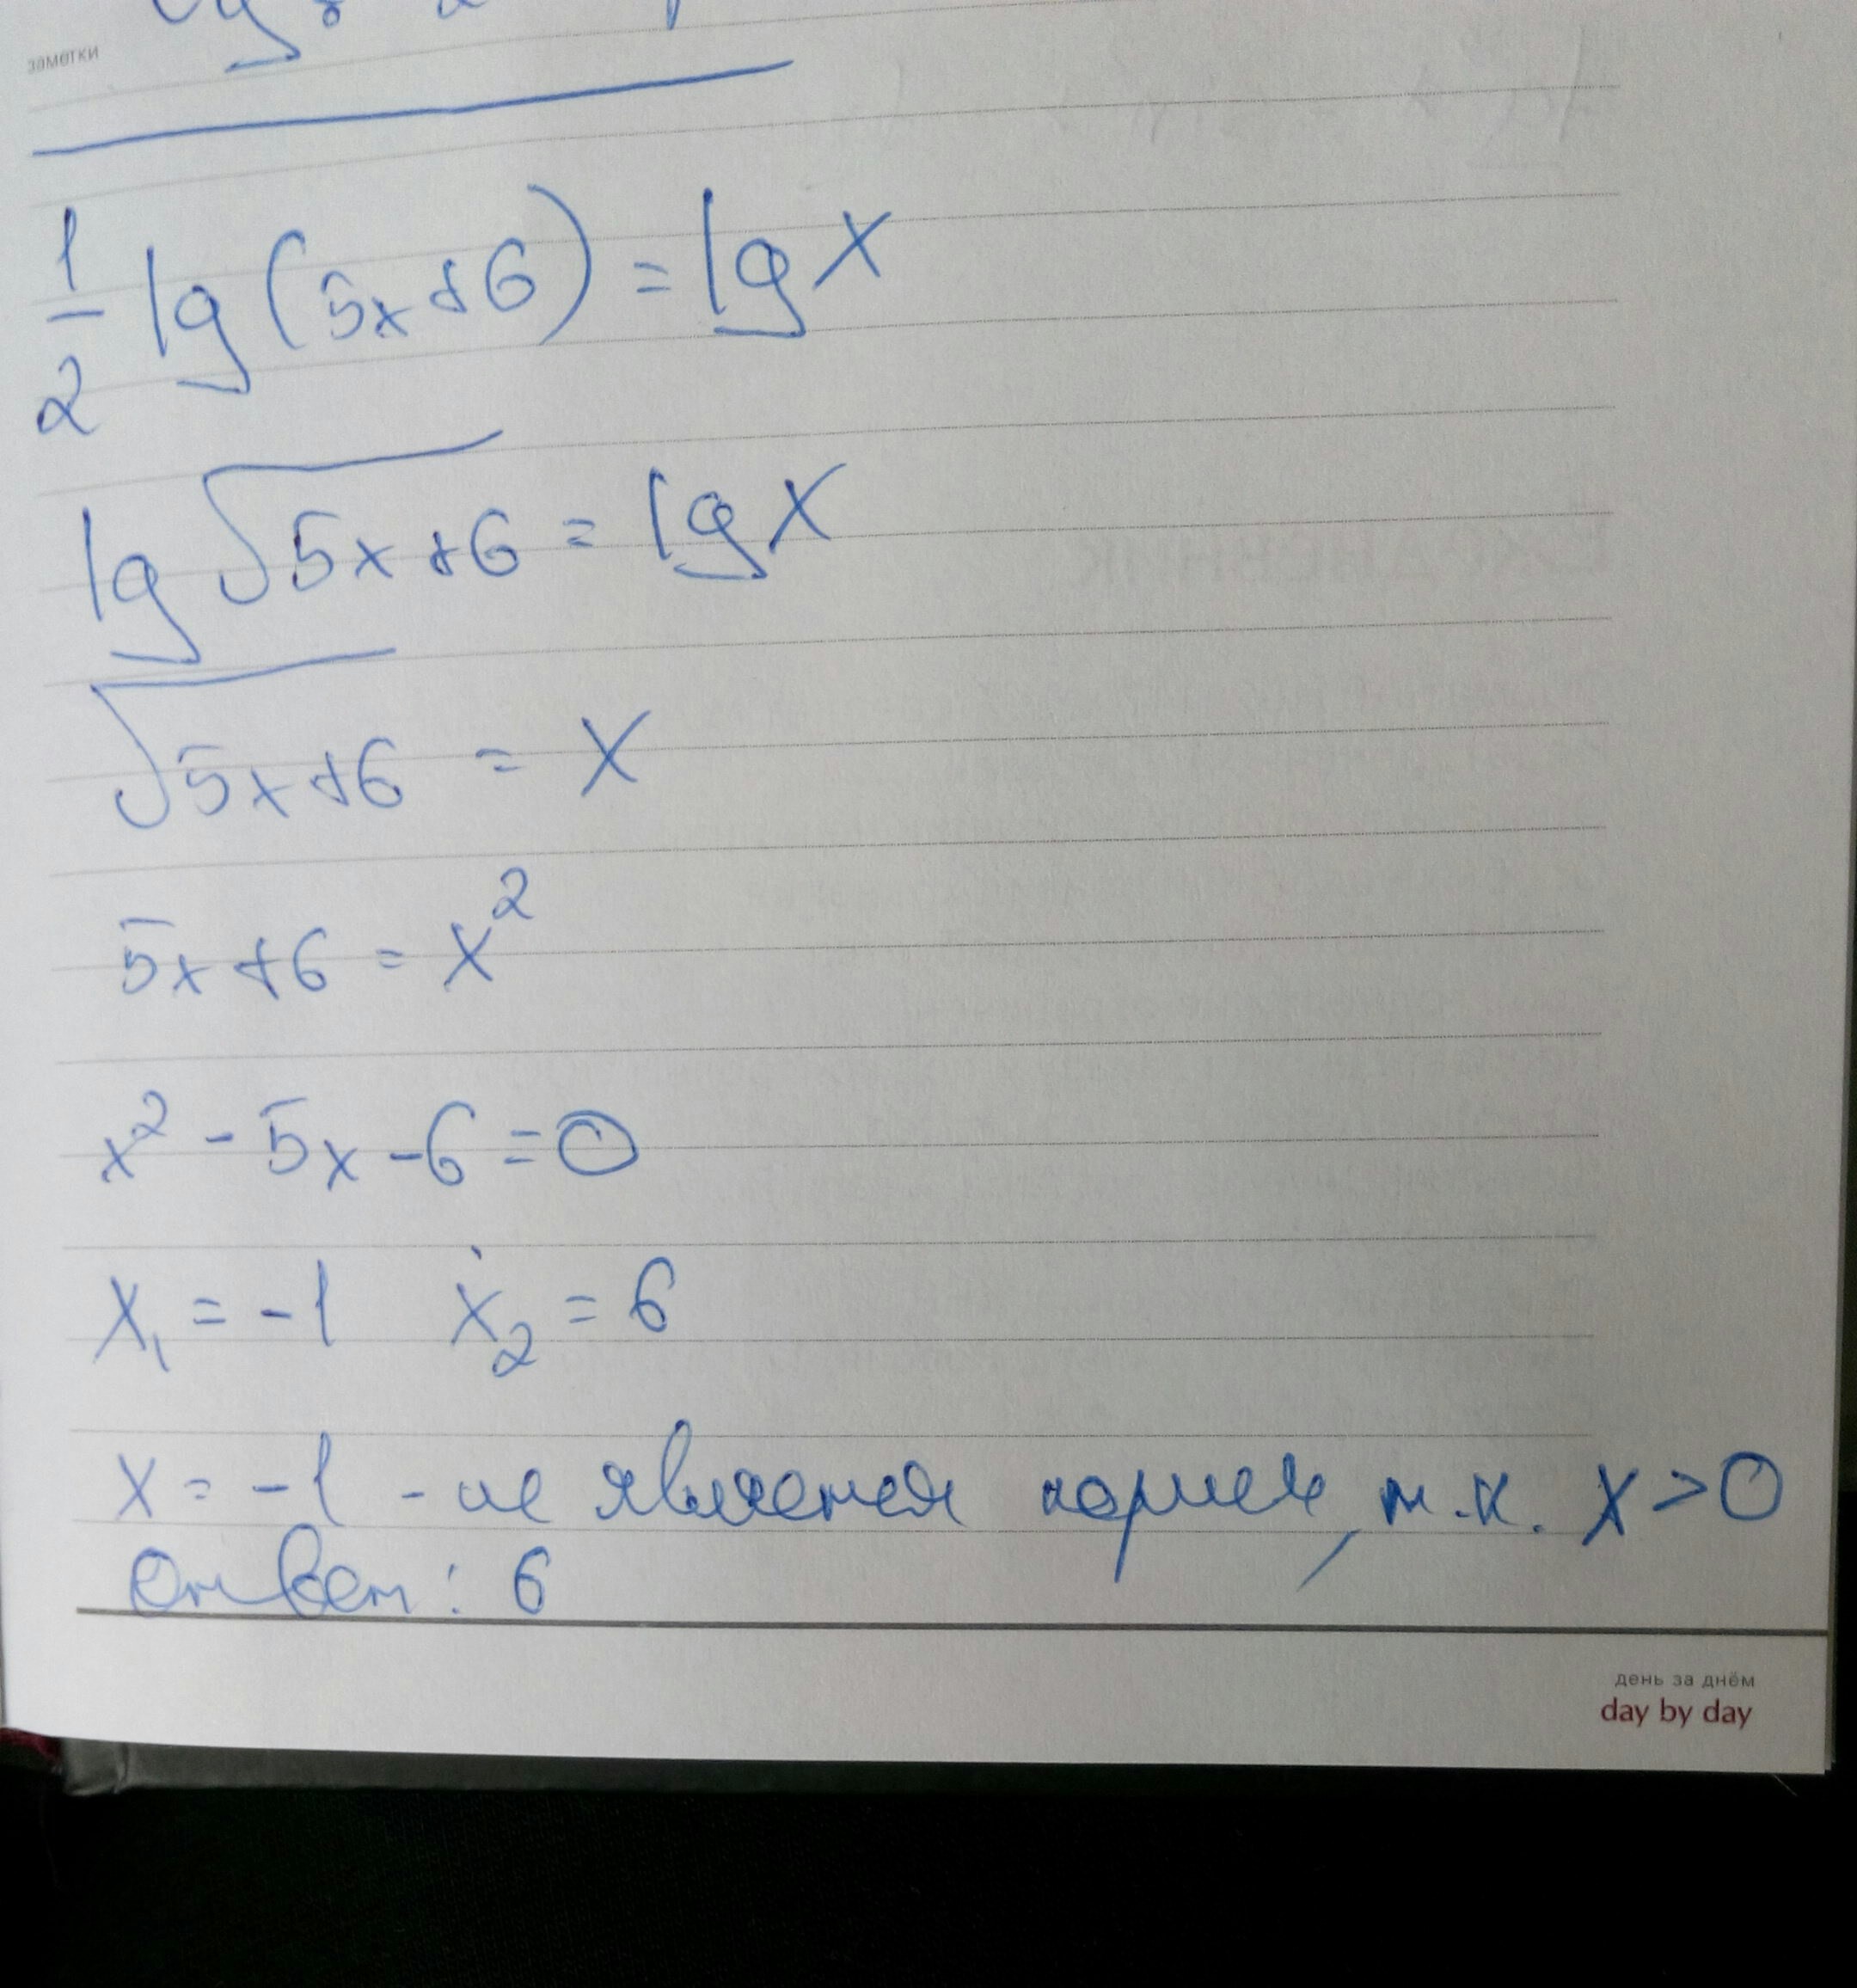 заметки
1/2 lg(5x+6) = lg x
lg √5x+6 = lg x
√5x+6 = x
5x+6 = x²
x² - 5x - 6 = 0
x₁ = -1 x₂ = 6
x = -1 - не является корнем, т.к. x > 0
Ответ: 6
день за днём
day by day